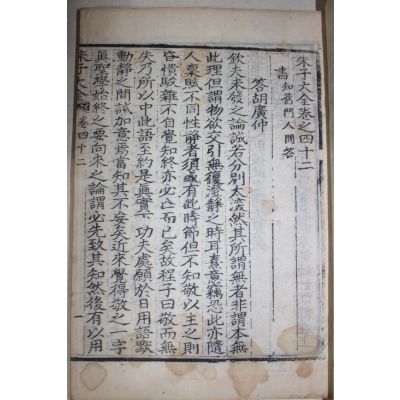 朱子大全卷之四十二
書 知舊門人問答
答胡廣仲
欽夫未發之論誠若分別太深然其所謂無者非謂本無
此理但謂物欲交引無復澄靜之時耳熹意竊恐此亦隨
人稟賦不同性靜者須或有此時節但不知敬以主之則
昏憒駁雜不自覺知終亦必亡而已矣故程子曰敬而無
失乃所以中此語至約是眞實下功夫處願於日用語默
動靜之間試加意焉當知其不妄矣近來覺得敬之一字
眞聖學始終之要向來之論謂必先致其知然後有以用
朱子大全 卷四十二
一